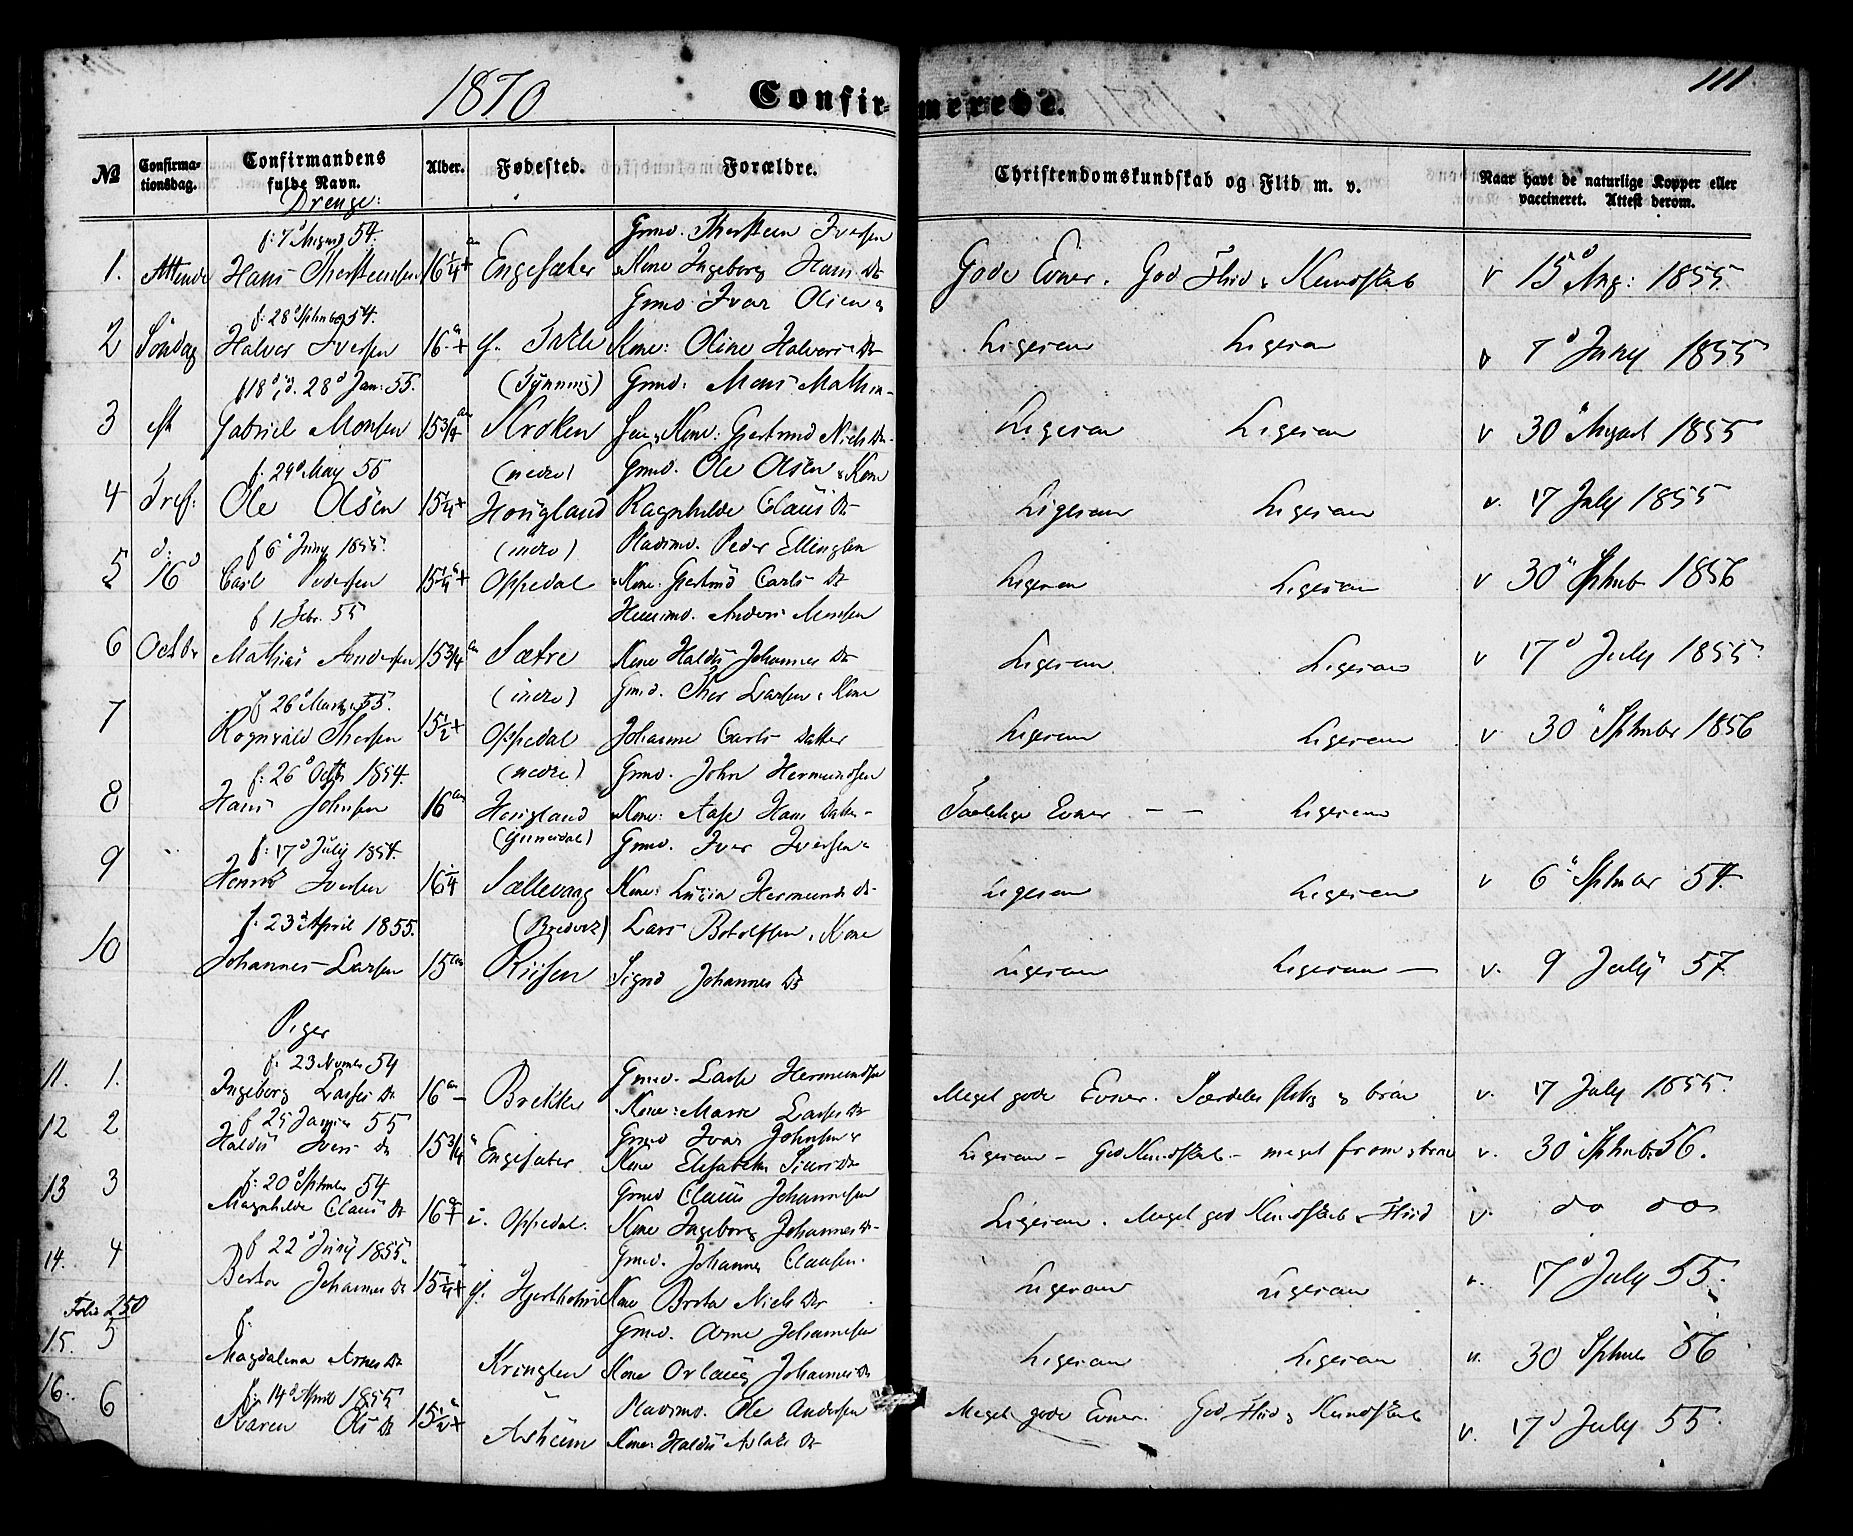 1870
Confirmerede.
111
№
Confirmationsdag.
Confirmandens fulde Navn.
Alder.
Fødested.
Forældre.
Christendomskundskab og Flid m. v.
Naar havt de naturlige Kopper eller vaccineret. Attest derom.
Drenge:
f: 7d August 54. Gmd. Thorsteen Iversen
1. Attende Hans Thorsteensen 16 1/4 + Engesæter Kone Ingeborg Hans Dr Gode Evner. God Flid & Kundskab v 15d Aug: 1855.
f: 28d Sptmbr 54. Gmd Ivar Olsen &
2 Søndag Halvor Iversen 16 + Takle Kone: Oline Halvors Dr Ligesaa Ligesaa v 7d Juny 1855
28d Jan: 55. (Tynning) Gmd: Mons Mathias-
3 eft Gabriel Monsen 15 3/4 Kroken Kone: Gjertrud Niels Dr Ligesaa Ligesaa v 30 August 1855
f. 29d May 55 (nedre) Gmd. Ole Olsen & Kone
4 Tref: Ole Olsen 15 1/4 + Hougland Ragnhilde Claus Dr Ligesaa Ligesaa v. 17 July 1855
f 6d Juny 1855. (indre) Pladsmd. Peder Ellingsen
5 16d Carl Pedersen 15 1/4 + Oppedal Kone: Gjertrud Carls Dr Ligesaa Ligesaa v 30 Sptmbr 1856
f 1 Febr. 55 Huusmd. Anders Monsen
6 Octbr Mathias Andersen 15 3/4 Sætre Kone Haldis Johannes Dr Ligesaa Ligesaa v 17d July 1855.
f 26d Marts 55. (indre) Gmd. Thor Larsen & Kone
7 Rognvald Thorsen 15 1/2 + Oppedal Johanne Carls Datter Ligesaa Ligesaa v 30 Sptmber 1856
f: 26d Octbr 1854. (nedre) Gmd. John Hermundsen
8 Hans Johnsen 16 Hougland Kone: Aase Hans Datter Taalelige Evner - - Ligesaa
f: 17d July 1854. Gmd. Iver Iversen &
9 Iversen 16 1/4 Sællevaag Kone: Lucia Hermunds Dr Ligesaa Ligesaa v 6 Sptmber 54.
f. 23d April 1855. Lars Botolfsen & Kone
10 Johannes Larsen 15 Riisen Signi Johannes Dr Ligesaa Ligesaa v. 9 July 57.
Piger
f: 23 Novmber 54 Gmd. Lasse Hermundsen
11. 1. Ingeborg Lasses Dr 16 Brekke Kone: Marie Lasses Dr Meget gode Evner. Særdeles flittig & brav v. 17 July 1855.
f 25 Januar 55 Gmd Ivar Johnsen &
12 2 Haldis Ivers Dr 15 3/4 Engesæter Kone Elisabeth Dr Ligesaa - God Kundskab - meget from & brav v. 30 Sptmb: 56.
f: 20d Sptmber 54 Gmd Claus Johannesen
13 3 Magnhilde Claus Dr 16 i. Oppedal. Kone Ingeborg Johannes Dr Ligesaa. Meget god Kundskab & Flid v. do do
f 22d Juny 1855. Gmd. Johannes Clausen.
14. 4 Berta Johannes Dr 15 1/4 + Hjertholm Kone Brita Niels Dr Ligesaa Ligesaa v. 17d July 55.
Folio 250
f. Gmd. Arne Johannesen
15. 5 Magdalina Arnes Dr Kringlen Kone Orlaug Johannes Dr Ligesaa Ligesaa v. 30 Sptmber 56
f. 14d April 1855 Pladsmd. Ole Andersen
16. 6 Karen Ols Dr 15 1/2 + Asheim Kone: Haldis Aslaks Dr Meget gode Evner. God Flid & Kundskab v. 17d July 55.